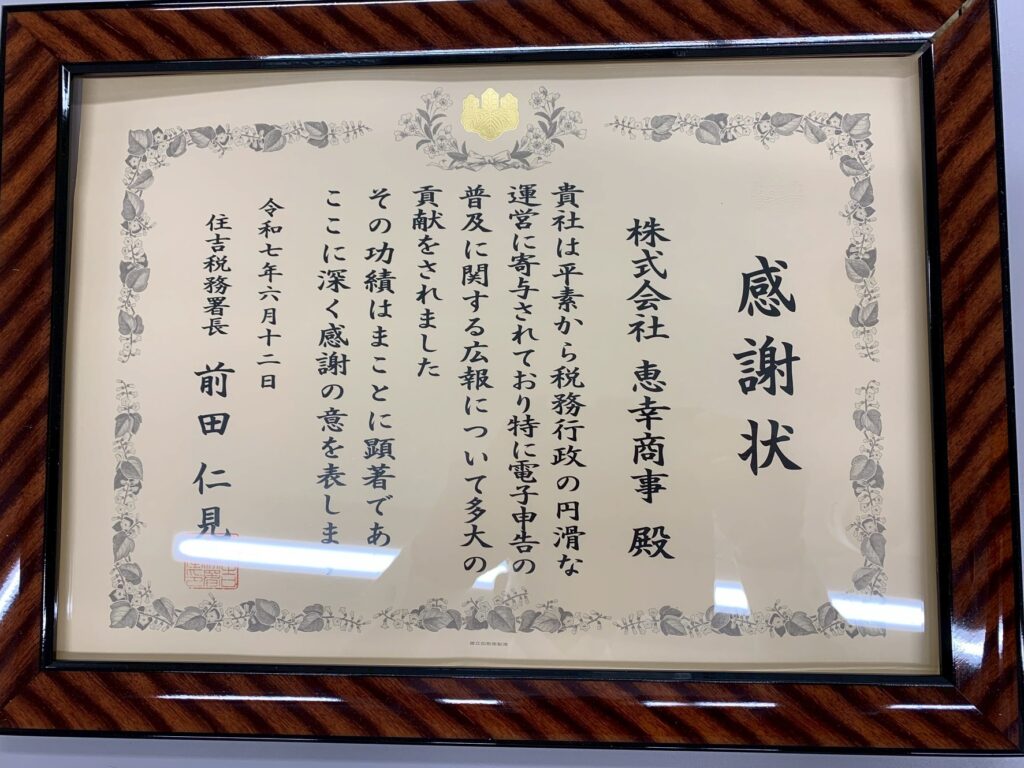 感謝状
株式会社 恵幸商事 殿
貴社は平素から税務行政の円滑な
運営に寄与されており特に電子申告の
普及に関する広報について多大の
貢献をされました
その功績はまことに顕著であ
ここに深く感謝の意を表しま
令和七年六月十二日
住吉税務署長 前田 仁見